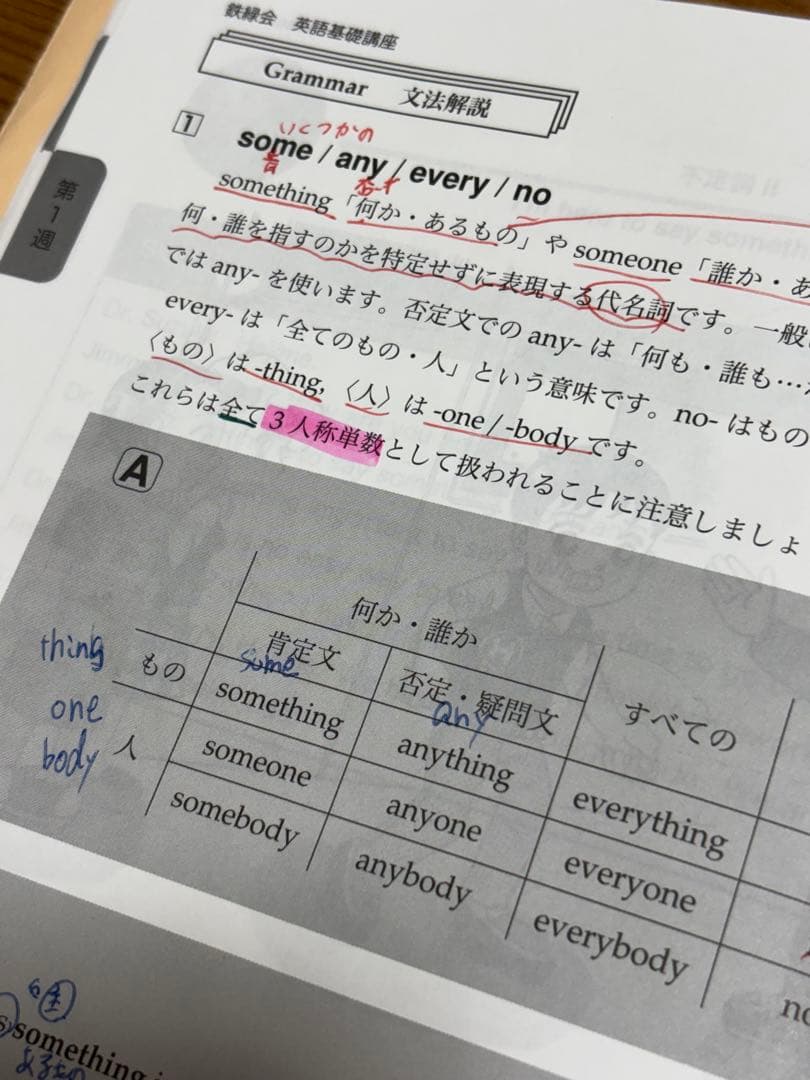 鉄緑会 英語基礎講座
Grammar 文法解説
第1週
いくつかの
1 some / any / every / no
肯 否
something「何か・あるもの」や someone「誰か・あ
何・誰を指すのかを特定せずに表現する代名詞です。一般
では any- を使います。否定文での any- は「何も・誰も…
every- は「全てのもの・人」という意味です。no- はもの
〈もの〉は -thing, 〈人〉は -one / -body です。
これらは全て3人称単数として扱われることに注意しましょ
A
何か・誰か
肯定文 否定・疑問文 すべての
some any
thing もの something anything everything
one 人 someone anyone everyone
body somebody anybody everybody
no
something